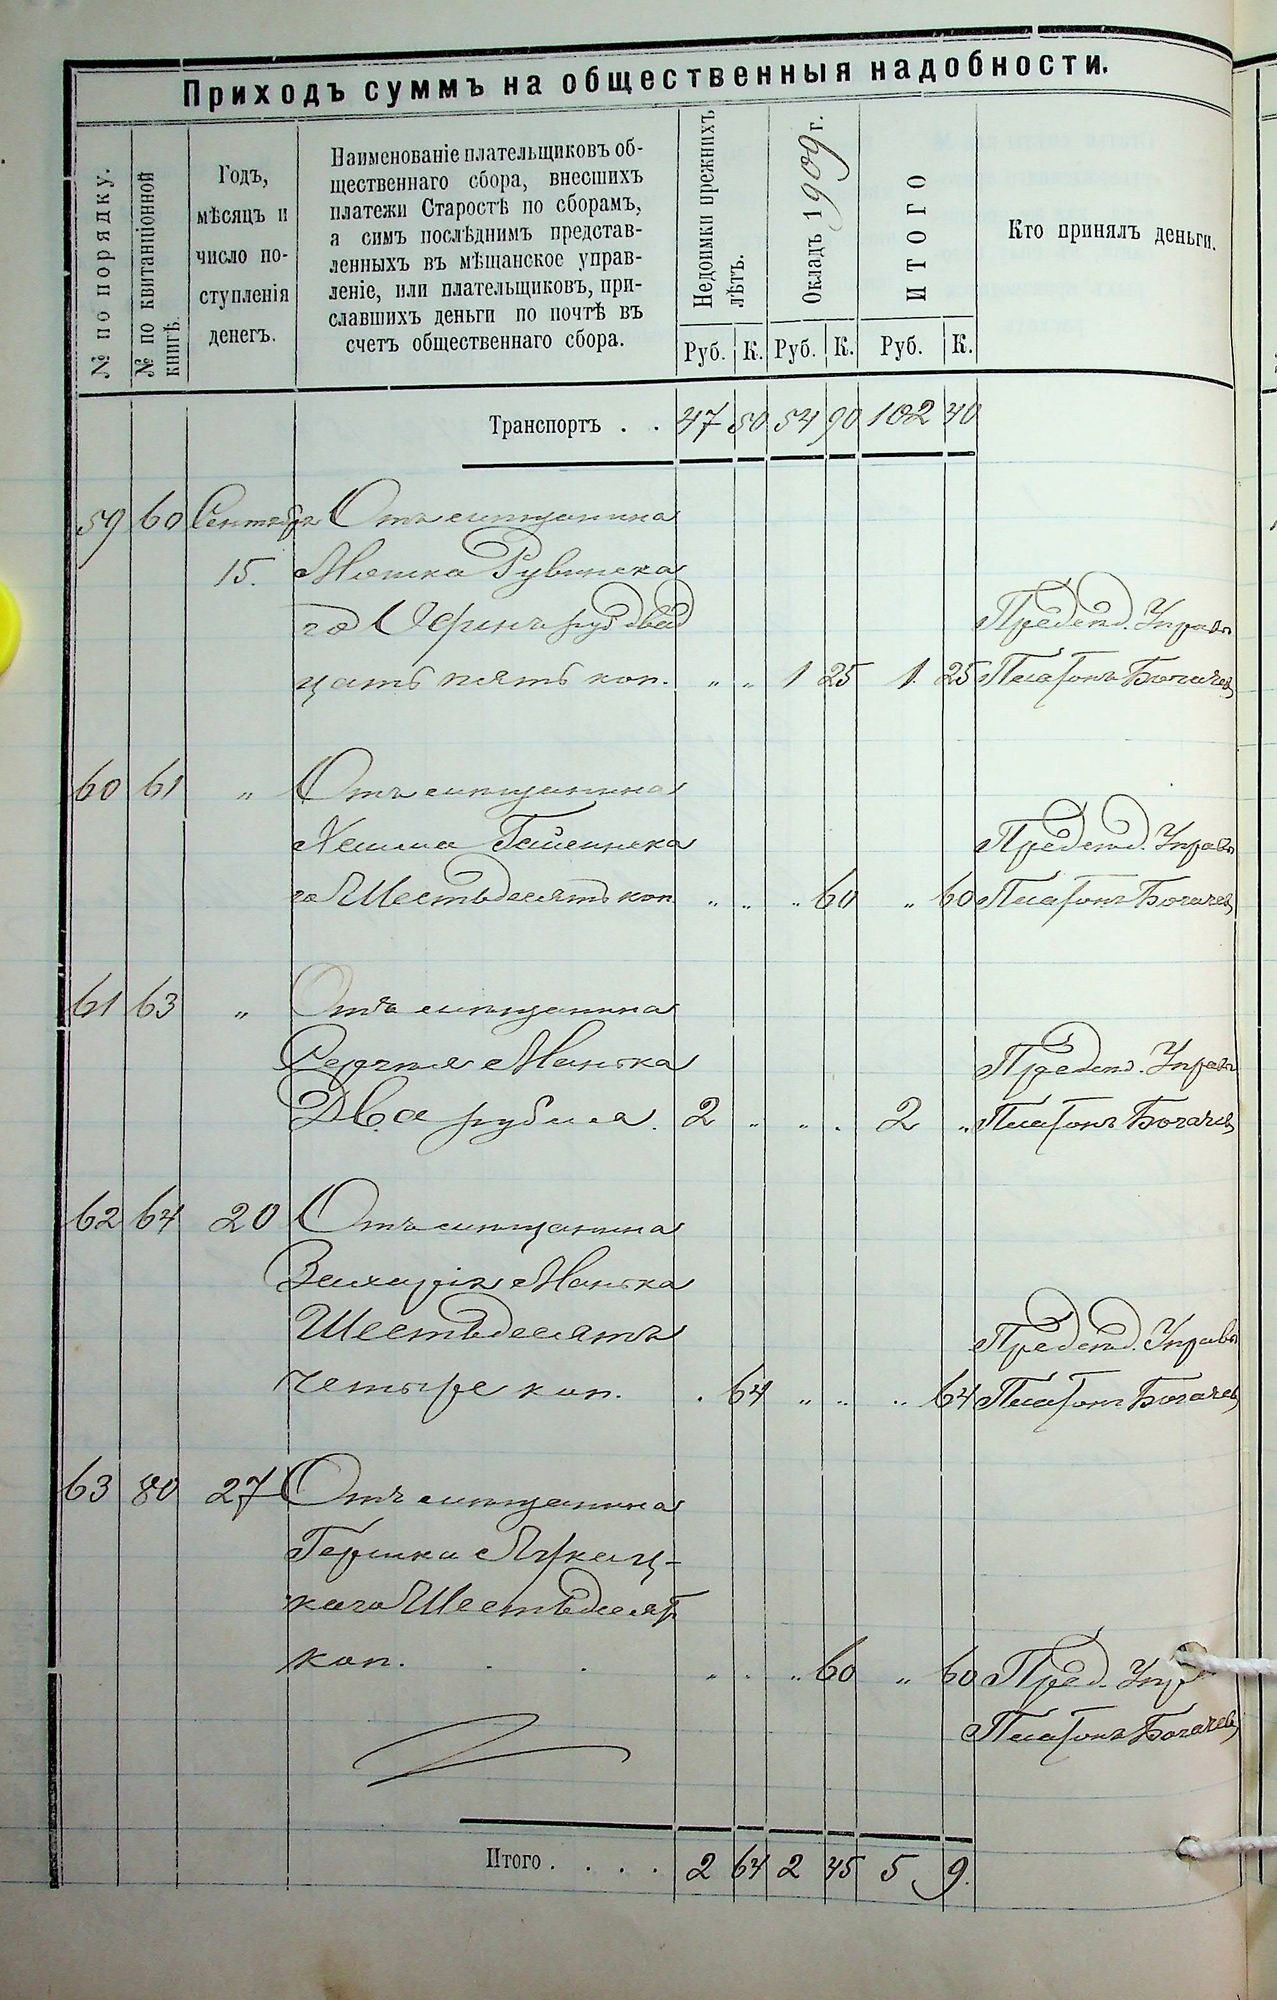 Приходъ суммъ на общественныя надобности.
№ по порядку.
№ по квитанціонной книгѣ.
Годъ,
мѣсяцъ и
число по-
ступленія
денегъ.
Наименованіе плательщиковъ об-
щественнаго сбора, внесшихъ
платежи Старостѣ по сборамъ,
а симъ послѣднимъ представ-
ленныхъ въ мѣщанское управ-
леніе, или плательщиковъ, при-
славшихъ деньги по почтѣ въ
счетъ общественнаго сбора.
Недоимки прежнихъ
лѣтъ.
Окладъ 1909 г.
ИТОГО
Кто принялъ деньги.
Руб. К. Руб. К. Руб. К.
Транспортъ . . 47 50 54 90 102 40
59 60 Сентября Отъ мѣщанина
15. Мошка Рувинска
го руб двад Предсѣд. Управы
цать пять коп. „ „ 1 25 1 25 Платонъ Богачев
60 61 „ Отъ мѣщанина
Предсѣд. Управы
го Шестьдесятъ коп „ „ „ 60 „ 60 Платонъ Богачев
61 63 „ Отъ мѣщанина
Манька Предсѣд. Управы
Два рубля. 2 „ „ . 2 „ Платонъ Богачев
62 64 20 Отъ мѣщанина
Захарія Манька
Шестьдесятъ Предсѣд. Управы
четыре коп. . 64 „ „ „ 64 Платонъ Богачев
63 80 27 Отъ мѣщанина
Гершка
каго Шестьдесят
коп. . . „ . „ 60 „ 60 Пред. Упр
Платонъ Богачев
Итого . . . . 2 64 2 45 5 9.